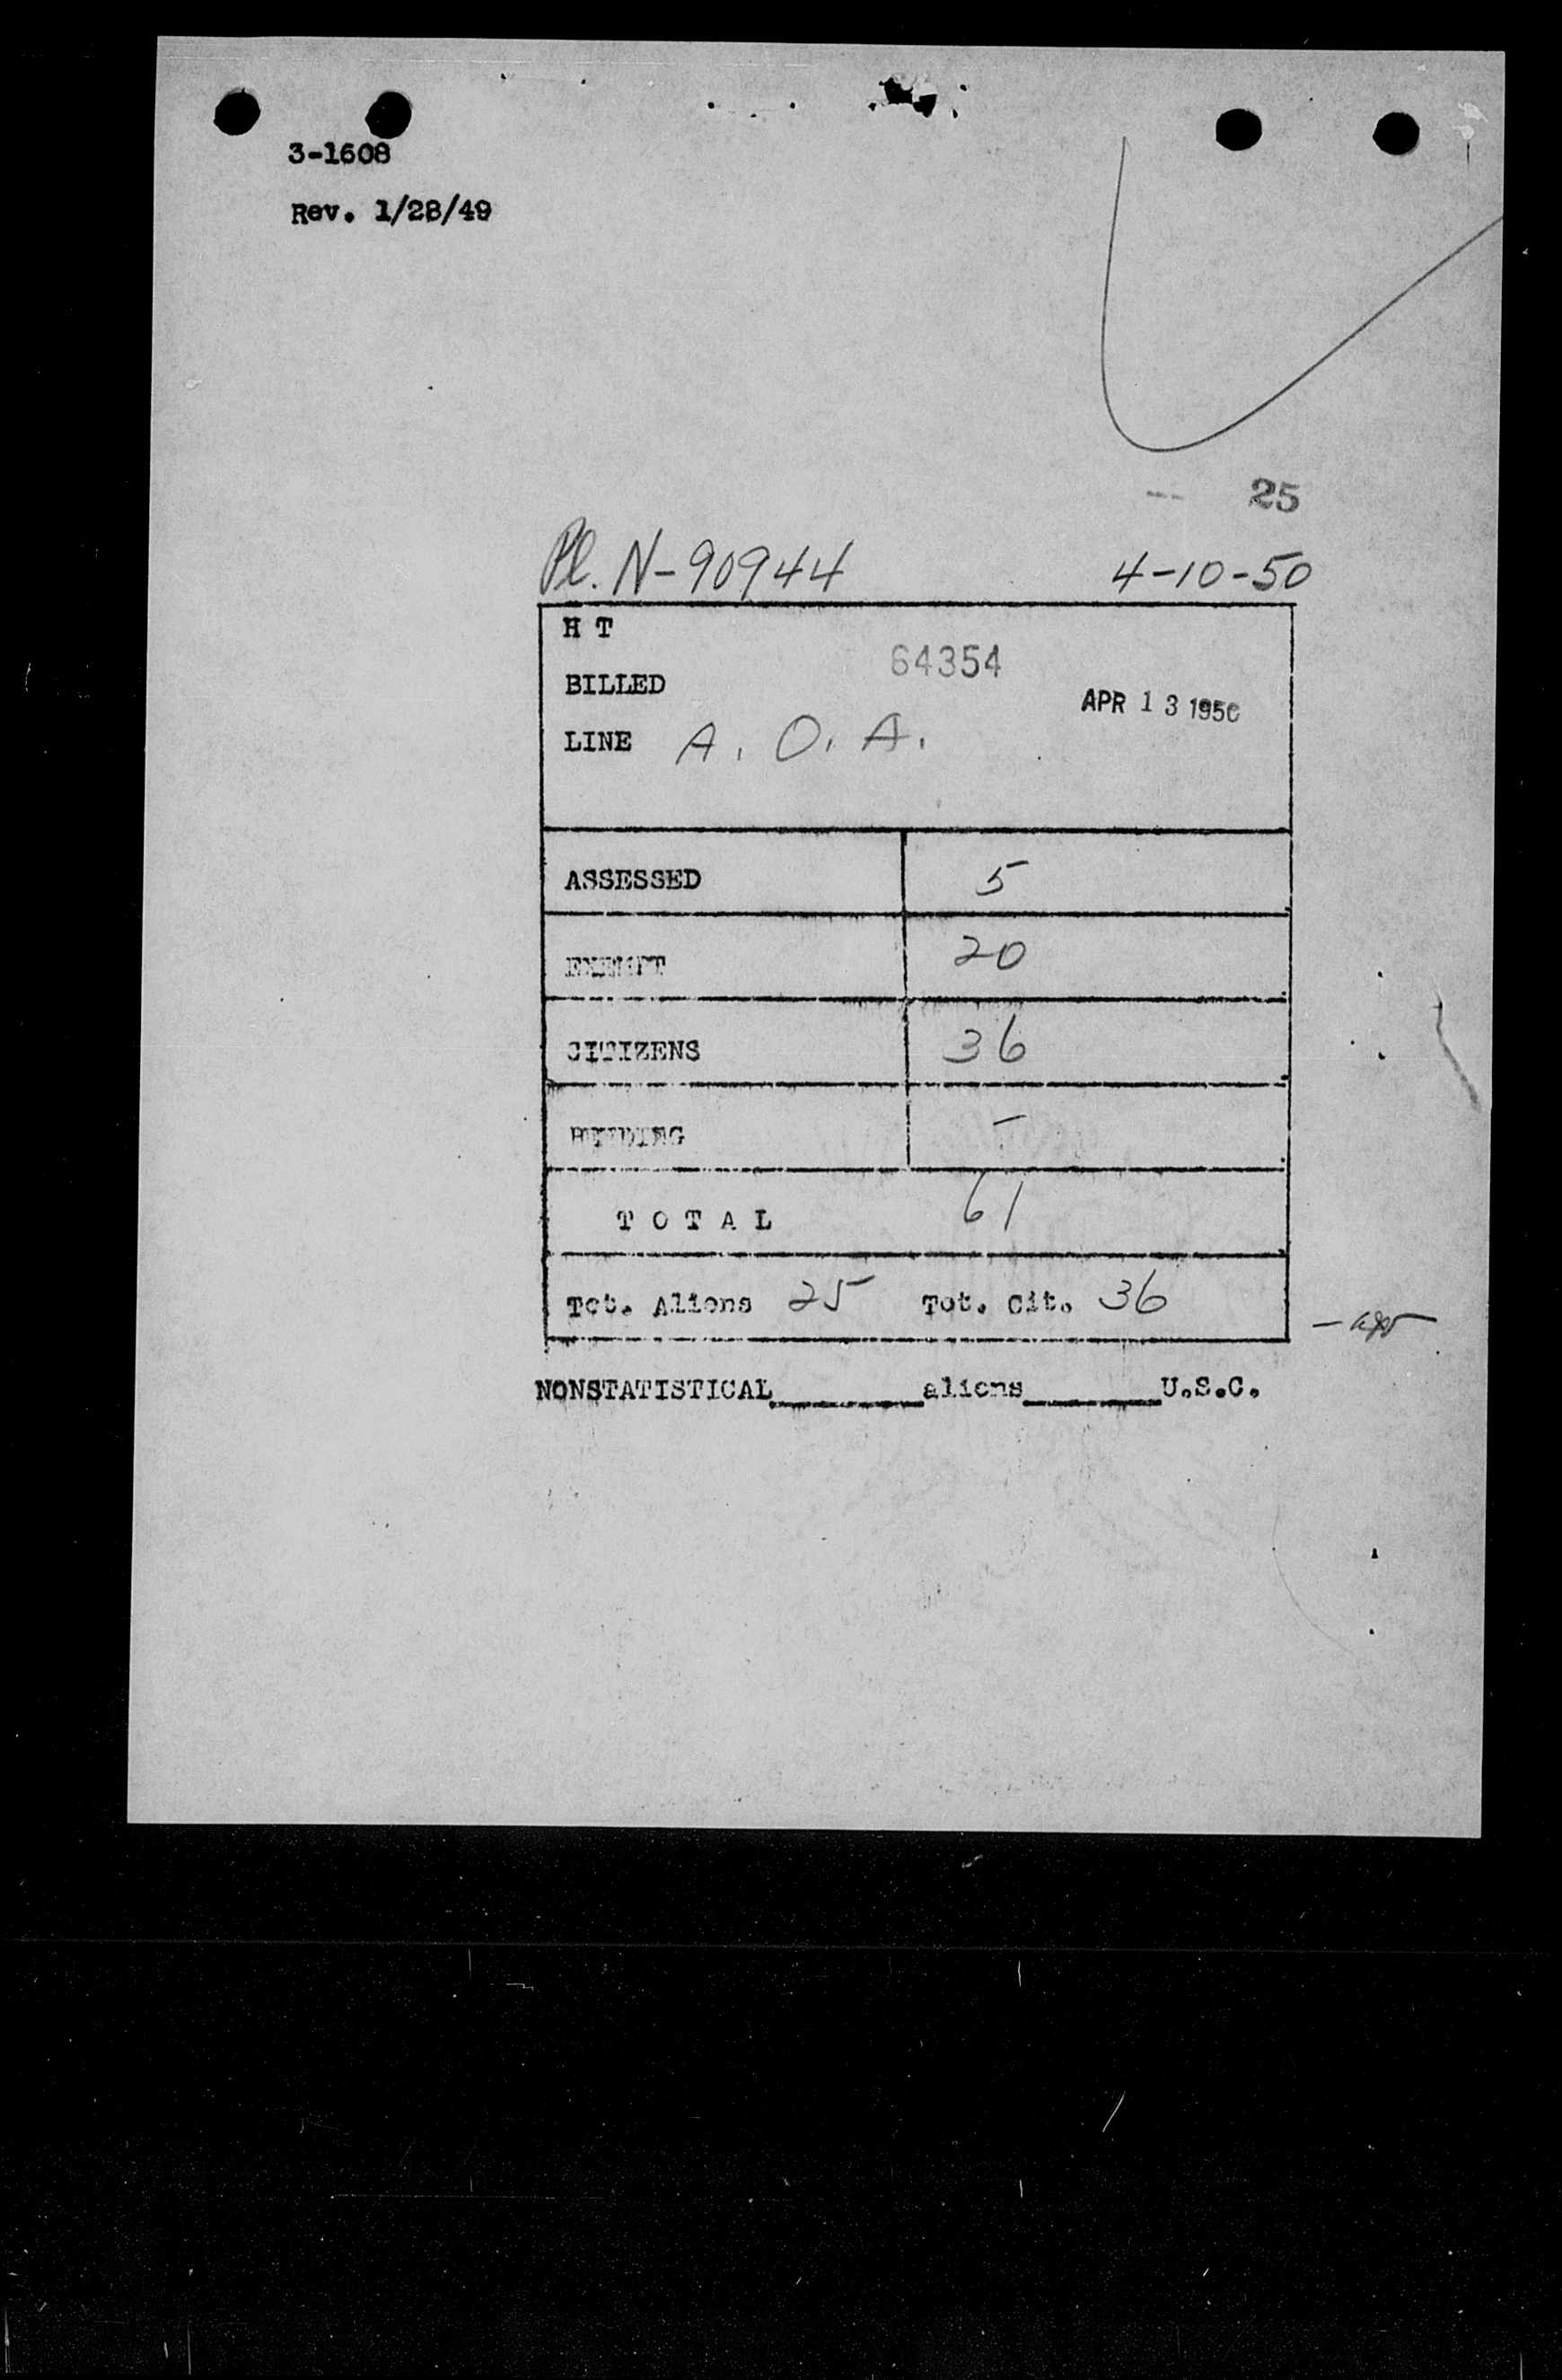 3-1608
Rev. 1/28/49
25
Pl. N-90944 4-10-50
H T
64354
BILLED
APR 13 1950
LINE A. O. A.
ASSESSED 5
EXEMPT 20
CITIZENS 36
PENDING -
T O T A L 61
Tot. Aliens 25 Tot. Cit. 36
NONSTATISTICAL______aliens______U.S.C.